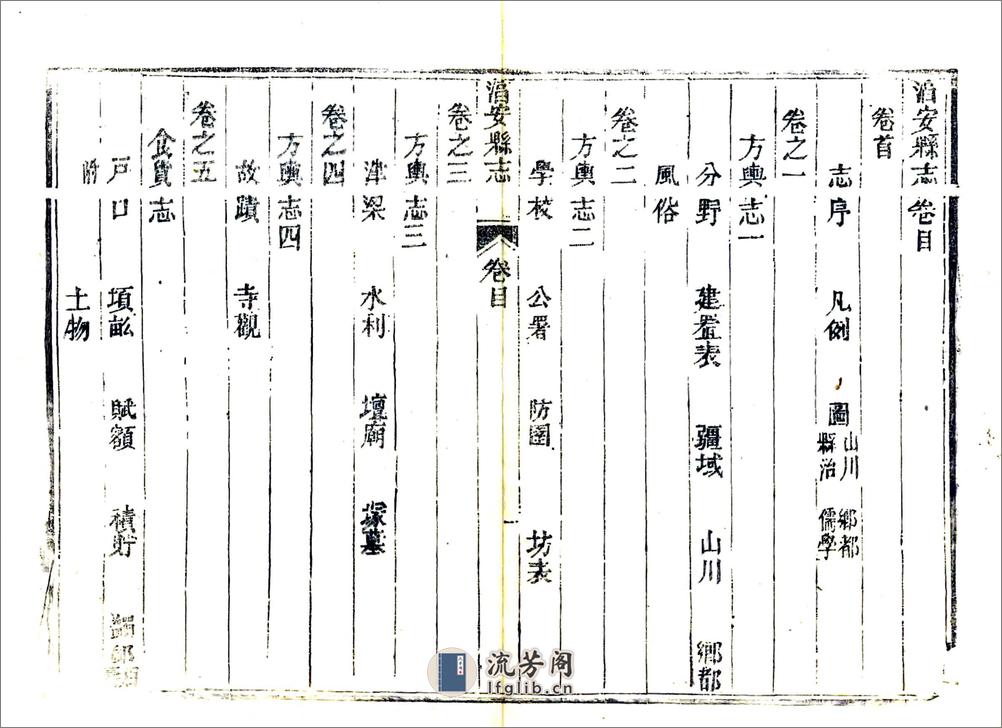 湻安縣志卷目
卷首
志序 凡例 圖 山川 鄉都 縣治 儒學
卷之一
方輿志一
分野 建置表 疆域 山川 鄉都
風俗
卷之二
方輿志二
學校 公署 防圉 坊表
湻安縣志 卷目 一
卷之三
方輿志三
津梁 水利 壇廟 塚墓
卷之四
方輿志四
故蹟 寺觀
卷之五
食貨志
戶口 頃畝 賦額 積貯
附 土物
流芳阁
lfglib.cn